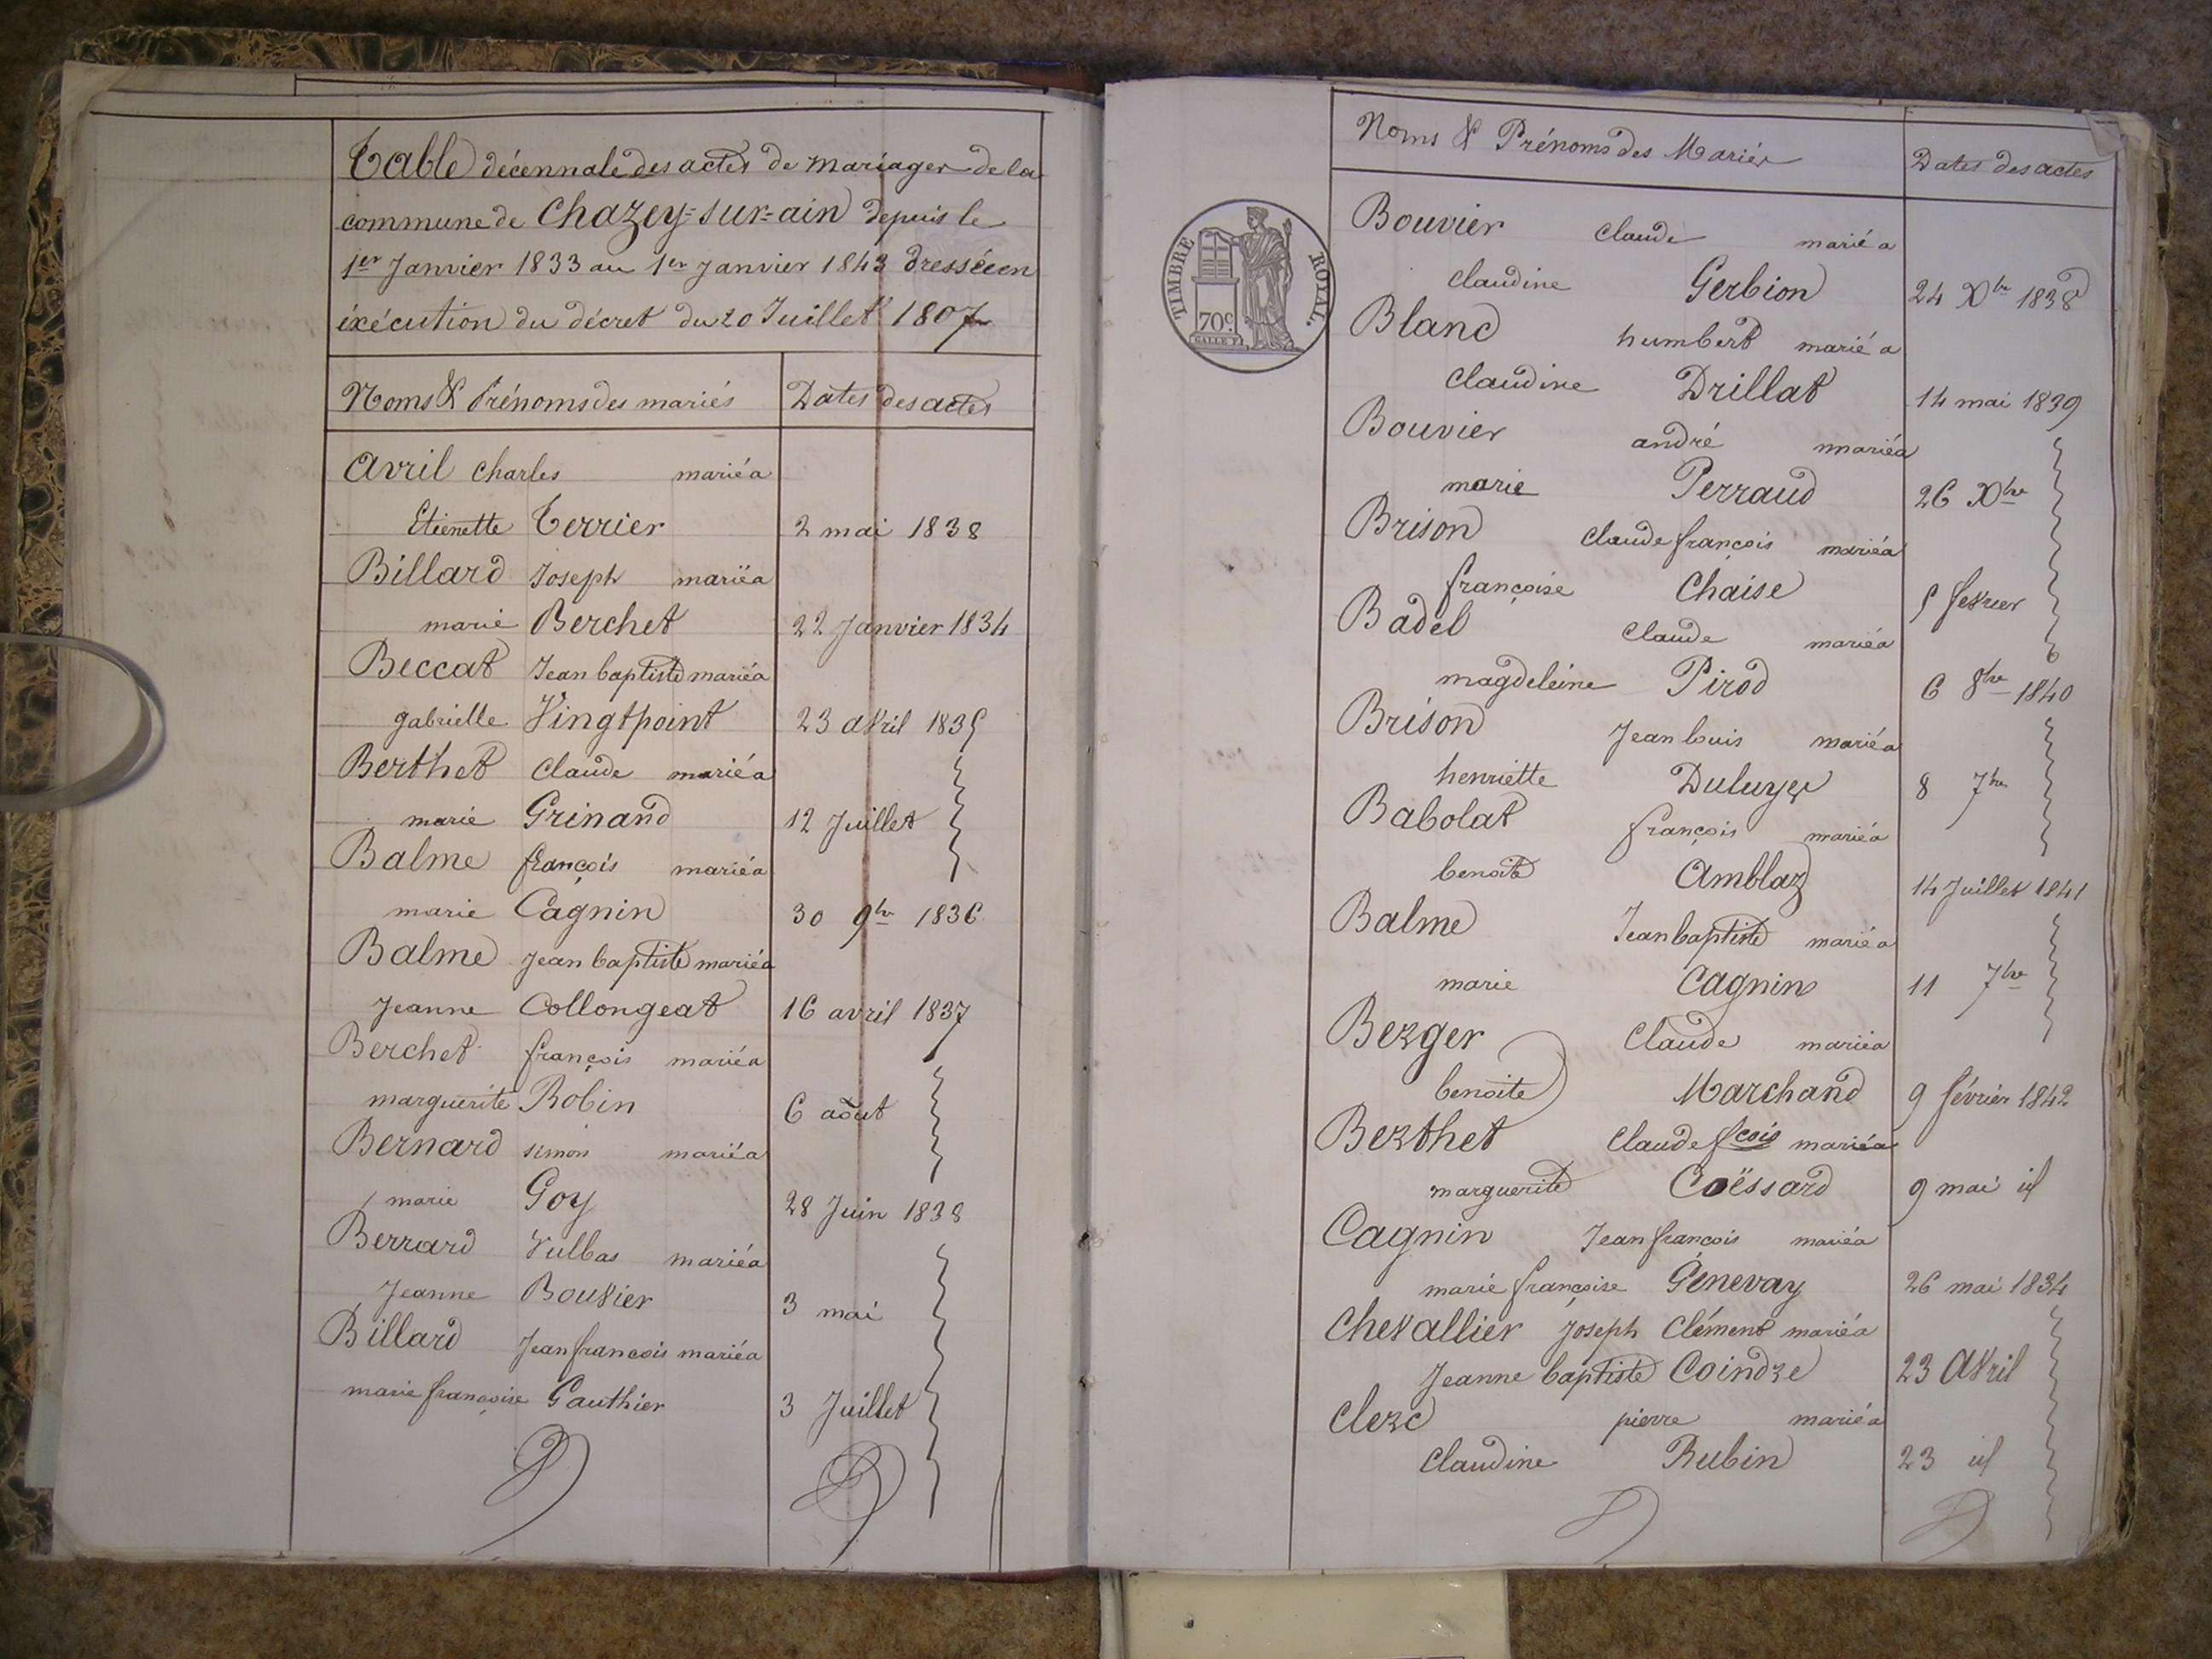 Table décennale des actes de mariages de la
commune de Chazey-sur-ain depuis le
1er Janvier 1833 au 1er Janvier 1843 dressée en
éxécution du décret du 20 Juillet 1807
Noms & Prénoms des mariés Dates des actes
Avril Charles marié a
Etienette Terrier 2 mai 1838
Billard Joseph marié a
marie Berchet 22 Janvier 1834
Beccat Jean baptiste marié a
gabrielle Vingtpoint 23 avril 1835
Berthet Claude marié a
marie Grinand 12 Juillet
Balme françois marié a
marie Cagnin 30 9bre 1836
Balme Jean baptiste marié a
Jeanne Collongeat 16 avril 1837
Berchet françois marié a
marguerite Robin 6 août
Bernard simon marié a
marie Goy 28 Juin 1838
Berrard Vulbas marié a
Jeanne Bouvier 3 mai
Billard Jean francois marié a
marie françoise Gauthier 3 Juillet
Noms & Prénoms des Mariés Dates des actes
TIMBRE ROYAL.
70c.
GALLE F.
Bouvier Claude marié a
Claudine Gerbion 24 Xbre 1838
Blanc humbert marié a
Claudine Drillat 14 mai 1839
Bouvier andré marié a
marie Perraud 26 Xbre
Brison Claude françois marié a
françoise Chaise 5 fevrier
Badel Claude marié a
magdeleine Pirod 6 8bre 1840
Brison Jean louis marié a
henriette 8 7bre
Babolat françois marié a
benoite Amblaz 14 Juillet 1841
Balme Jean baptiste marié a
marie Cagnin 11 7bre
Berger Claude marié a
benoite Marchand 9 février 1842
Berthet Claude fcois marié a
marguerite Coëssard 9 mai id
Cagnin Jean francois marié a
marie françoise Génevay 26 mai 1834
Chevallier Joseph Clément marié a
Jeanne baptiste Coindre 23 Avril
Clerc pierre marié a
Claudine Rubin 23 id